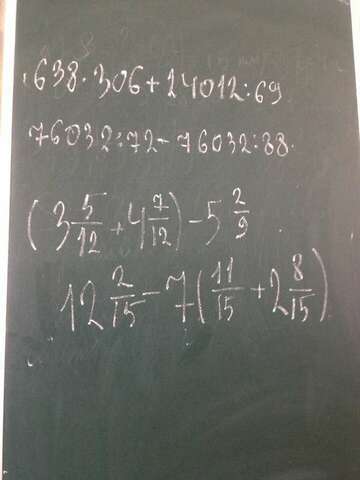 638·306+24012:69
76032:72-76032:88.
(3 5/12 + 4 7/12) - 5 2/9
12 2/15 - 7(11/15 + 2 8/15)